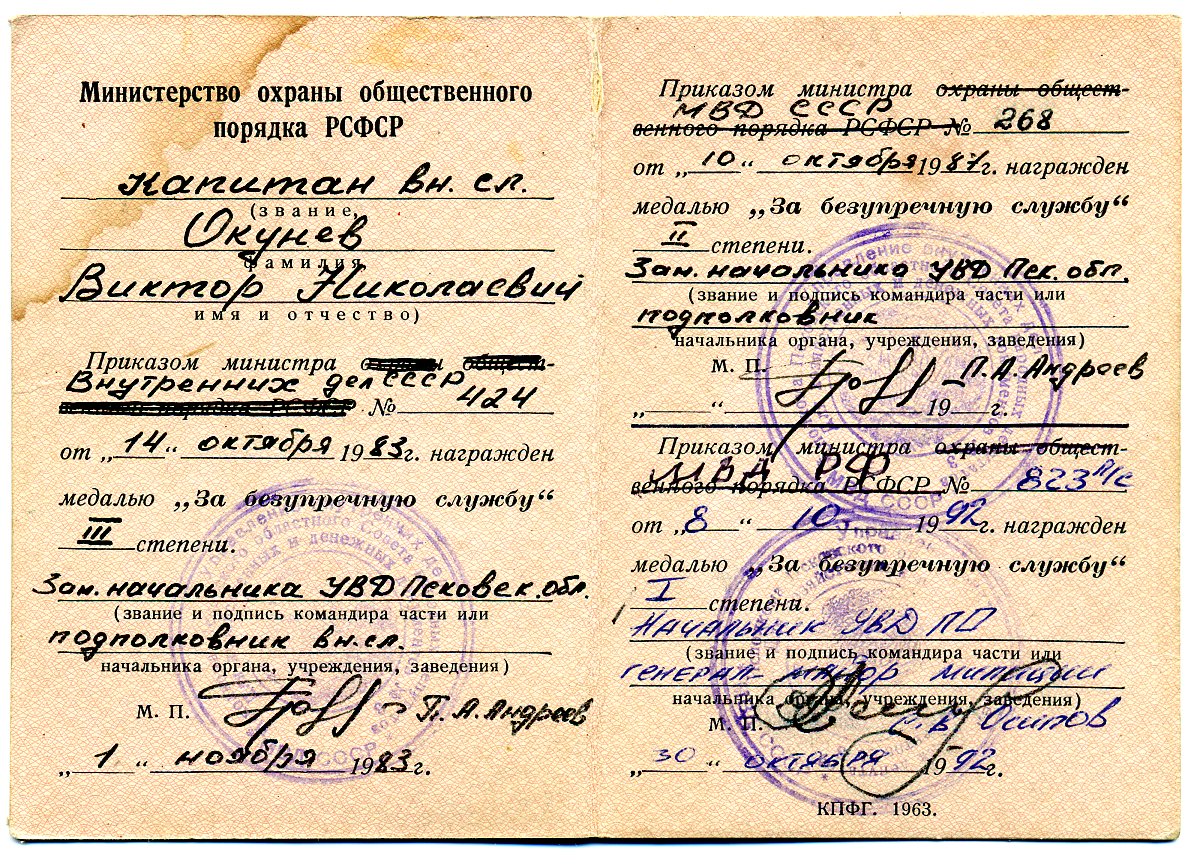 Министерство охраны общественного
порядка РСФСР
Капитан вн. сл.
(звание,
Окунев
фамилия
Виктор Николаевич
имя и отчество)
Приказом министра охраны общест-
Внутренних дел СССР
венного порядка РСФСР № 424
от „14“ октября 1983 г. награжден
медалью „За безупречную службу“
III степени.
Зам. начальника УВД Псковск. обл.
(звание и подпись командира части или
подполковник вн. сл.
начальника органа, учреждения, заведения)
М. П. П. А. Андреев
„1“ ноября 1983 г.
Приказом министра охраны общест-
МВД СССР
венного порядка РСФСР № 268
от „10“ октября 1987 г. награжден
медалью „За безупречную службу“
II степени.
Зам. начальника УВД Пск. обл.
(звание и подпись командира части или
подполковник
начальника органа, учреждения, заведения)
М. П. П. А. Андреев
„ “ 19 г.
Приказом министра охраны общест-
МВД РФ
венного порядка РСФСР № 823 л/с
от „8“ 10 1992 г. награжден
медалью „За безупречную службу“
I степени.
Начальник УВД ПО
(звание и подпись командира части или
генерал-майор милиции
начальника органа, учреждения, заведения)
М. П. Осипов
„30“ октября 1992 г.
КПФГ. 1963.